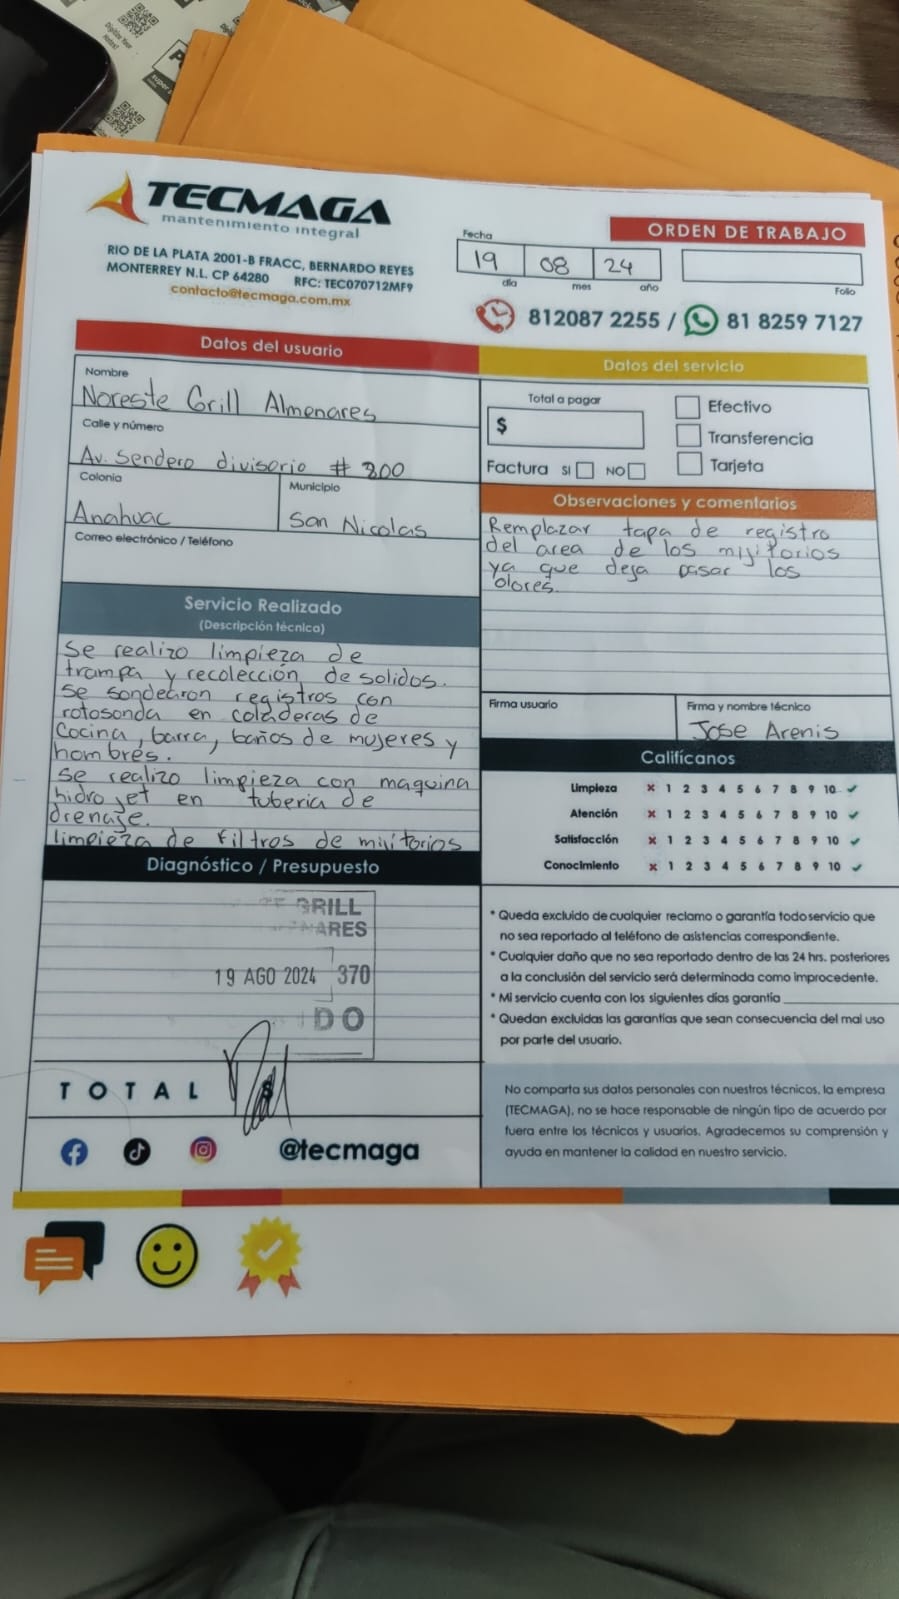 TECMAGA
mantenimiento integral
RIO DE LA PLATA 2001-B FRACC, BERNARDO REYES
MONTERREY N.L. CP 64280 RFC: TEC070712MF9
contacto@tecmaga.com.mx
ORDEN DE TRABAJO
Fecha
19 08 24
día mes año
Folio
812087 2255 / 81 8259 7127
Datos del usuario
Nombre
Noreste Grill Almenares
Calle y número
Av. Sendero divisorio # 300
Colonia
Anahuac
Municipio
San Nicolas
Correo electrónico / Teléfono
Servicio Realizado
(Descripción técnica)
Se realizo limpieza de
trampa y recolección de solidos.
Se sondearon registros con
rotosonda en coladeras de
Cocina, barra, baños de mujeres y
hombres.
Se realizo limpieza con maquina
hidro jet en tuberia de
drenaje.
limpieza de filtros de mijitorios
Diagnóstico / Presupuesto
GRILL
NARES
19 AGO 2024 370
DO
TOTAL
@tecmaga
Datos del servicio
Total a pagar
$
Efectivo
Transferencia
Tarjeta
Factura SI NO
Observaciones y comentarios
Remplazar tapa de registro
del area de los mijitorios
ya que deja pasar los
olores.
Firma usuario
Firma y nombre técnico
Jose Arenis
Califícanos
Limpieza x 1 2 3 4 5 6 7 8 9 10 ✓
Atención x 1 2 3 4 5 6 7 8 9 10 ✓
Satisfacción x 1 2 3 4 5 6 7 8 9 10 ✓
Conocimiento x 1 2 3 4 5 6 7 8 9 10 ✓
* Queda excluido de cualquier reclamo o garantía todo servicio que
no sea reportado al teléfono de asistencias correspondiente.
* Cualquier daño que no sea reportado dentro de las 24 hrs. posteriores
a la conclusión del servicio será determinada como improcedente.
* Mi servicio cuenta con los siguientes días garantía
* Quedan excluidas las garantías que sean consecuencia del mal uso
por parte del usuario.
No comparta sus datos personales con nuestros técnicos, la empresa
(TECMAGA), no se hace responsable de ningún tipo de acuerdo por
fuera entre los técnicos y usuarios. Agradecemos su comprensión y
ayuda en mantener la calidad en nuestro servicio.